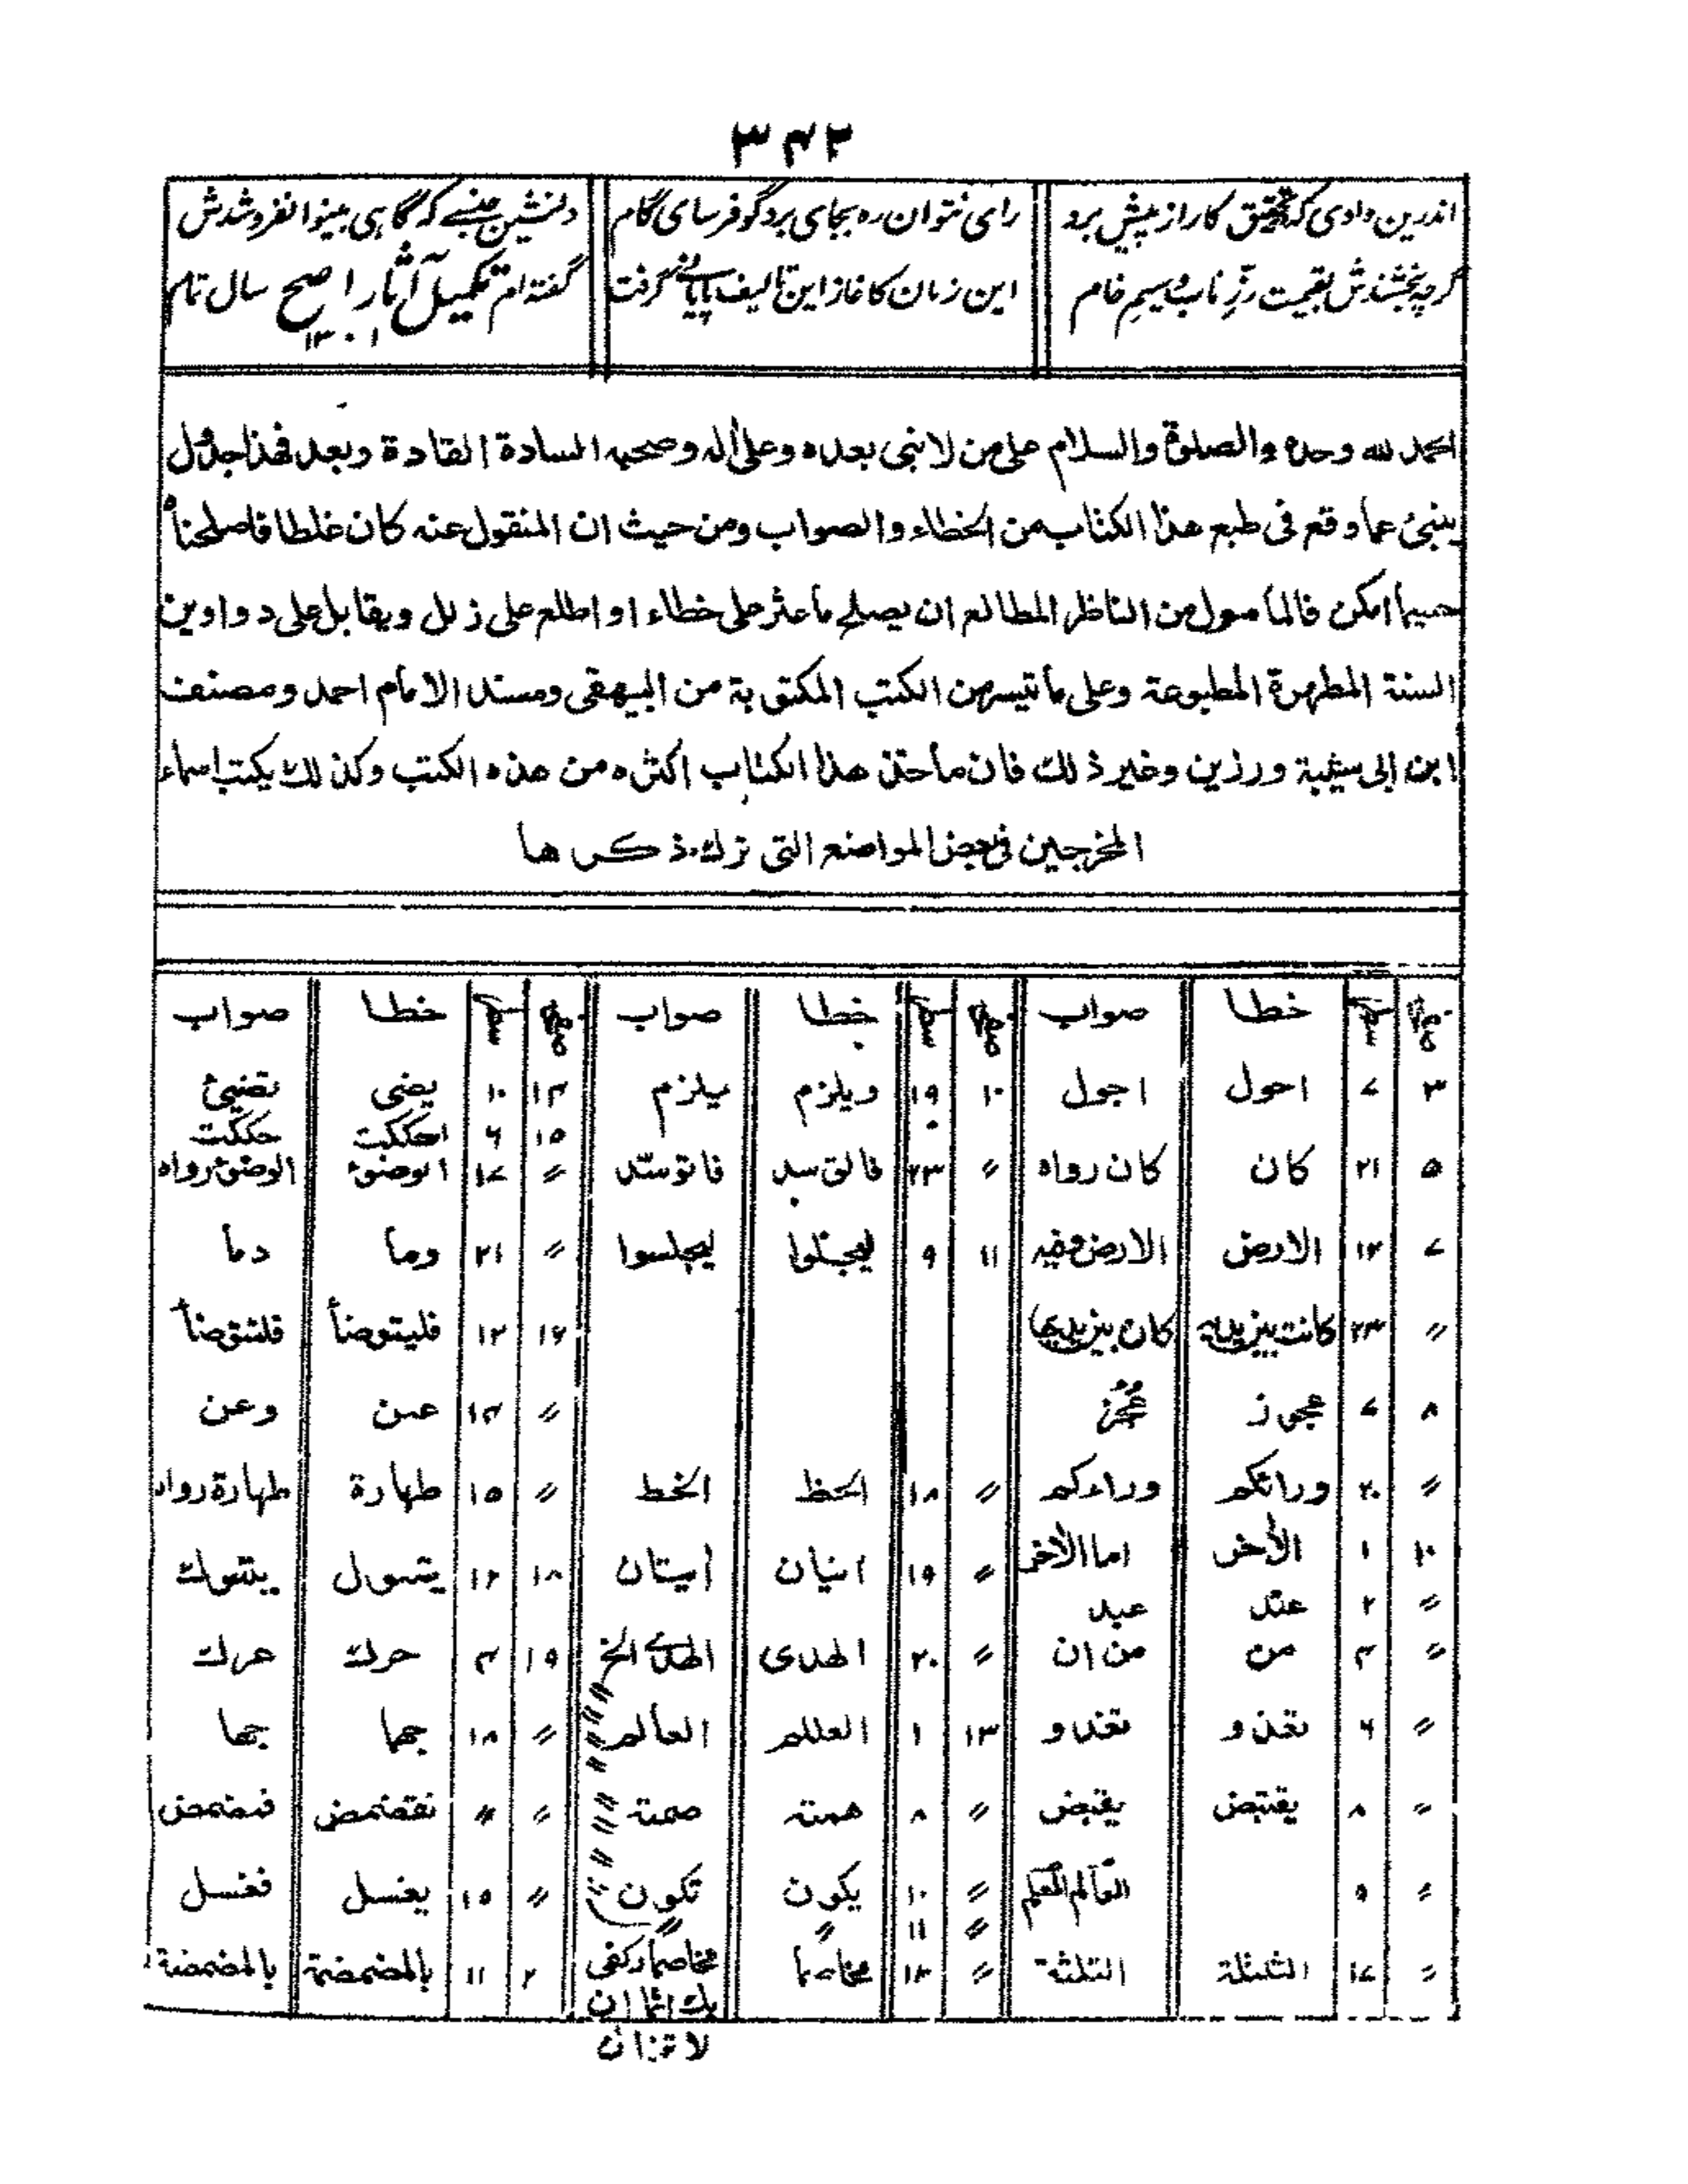 ٣٤٢
اندرین وادی که تحقیق کار از پیش برد رای نتوان ره بجای برد گو فرسای گام دلنشین جنسے که گاہی بینوا نفروشدش
گرچه بخشندش بقیمت زرِّ ناب و سیمِ خام این زمان کاغاز این تالیف پایانے گرفت گفته ام تکمیل آثار اصح سال تمام
١٣٠١
الحمد لله وحده والصلوة والسلام على من لا نبى بعده وعلى اٰله وصحبه السادة القادة وبعد فهذا جدول
ينبئ عما وقع فى طبع هذا الكتاب من الخطاء والصواب ومن حيث ان المنقول عنه كان غلطا فاصلحناه
حسبما امكن فالمأمول من الناظر المطالع ان يصلح ما عثر على خطاء او اطلع على زلل ويقابل على دواوين
السنة المطهرة المطبوعة وعلى ما تيسر من الكتب المكتوبة من البيهقى ومسند الامام احمد ومصنف
ابن ابى شيبة ورزين وغير ذلك فان مأخذ هذا الكتاب اكثره من هذه الكتب وكذلك يكتب اسماء
المخرجين فى بعض المواضع التى ترك ذكرها
صفحه سطر خطا صواب صفحه سطر خطا صواب صفحه سطر خطا صواب
٣ ٧ احول اجول ١٠ ١٩ ويلزم يلزم ١٤ ١٠ يضى تضيئ
١٥ ٦ احككت حككت
٥ ٢١ كان كان رواه 〃 ٢٣ فالوسد فاتوسد 〃 ١٧ الوضوء الوضوء رواه
٧ ١٢ الارض الارض وفيه ١١ ٩ ليجثلوا ليجلسوا 〃 ٢١ وما دما
〃 ٢٣ ١٦ ١٢ فليتوضأ فلتتوضأ
٨ ٧ عجوز عُجُز 〃 ١٤ عن وعن
〃 ٢٠ ورائكم وراءكم 〃 ١٨ الحظ الخط 〃 ١٥ طهارة طهارة رواه
١٠ ١ الاٰخر اما الاٰخر 〃 ١٩ اتيان أتيتان ١٨ ١٢ يتسول يتسوك
〃 ٢ عند عبد
〃 ٤ من من ان 〃 ٢٠ الهدى الهدى الخ ١٩ ٤ حرك هرك
〃 ٦ تغذو تغدو ١٣ ١ العللم العالم 〃 ١٨ جهما جهما
〃 ٨ يقتبض يقبض 〃 ٨ همته صمته 〃 〃 تمضمض فمضمض
〃 ٩ العالم المعلم 〃 ١٠ يكون تكون 〃 ١٥ يغسل فغسل
〃 ١١ 〃 〃
〃 ١٧ الثلثة 〃 ١٣ مخاصما مخاصما وكفى ٢ ١١ بالمضمضة بالمضمضة
بك اثما ان
لا تزال